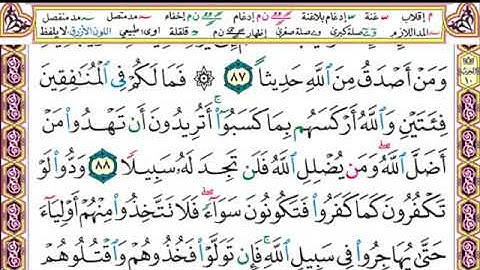 م إقلاب س غنة س إدغام بلاغنة ن م إدغام ن م إخفاء ~ مد متصل ~ مد منفصل
~ المد اللازم صلة كبرى و صلة صغرى إظهار ن م قلقلة اوى: طبيعي اللون الأزرق: لا يلفظ
وَمَنْ أَصْدَقُ مِنَ ٱللَّهِ حَدِيثًا ٨٧ ۞ فَمَا لَكُمْ فِى ٱلْمُنَٰفِقِينَ
فِئَتَيْنِ وَٱللَّهُ أَرْكَسَهُم بِمَا كَسَبُوٓا۟ ۚ أَتُرِيدُونَ أَن تَهْدُوا۟ مَنْ
أَضَلَّ ٱللَّهُ ۖ وَمَن يُضْلِلِ ٱللَّهُ فَلَن تَجِدَ لَهُۥ سَبِيلًا ٨٨ وَدُّوا۟ لَوْ
تَكْفُرُونَ كَمَا كَفَرُوا۟ فَتَكُونُونَ سَوَآءً ۖ فَلَا تَتَّخِذُوا۟ مِنْهُمْ أَوْلِيَآءَ
حَتَّىٰ يُهَاجِرُوا۟ فِى سَبِيلِ ٱللَّهِ ۚ فَإِن تَوَلَّوْا۟ فَخُذُوهُمْ وَٱقْتُلُوهُمْ